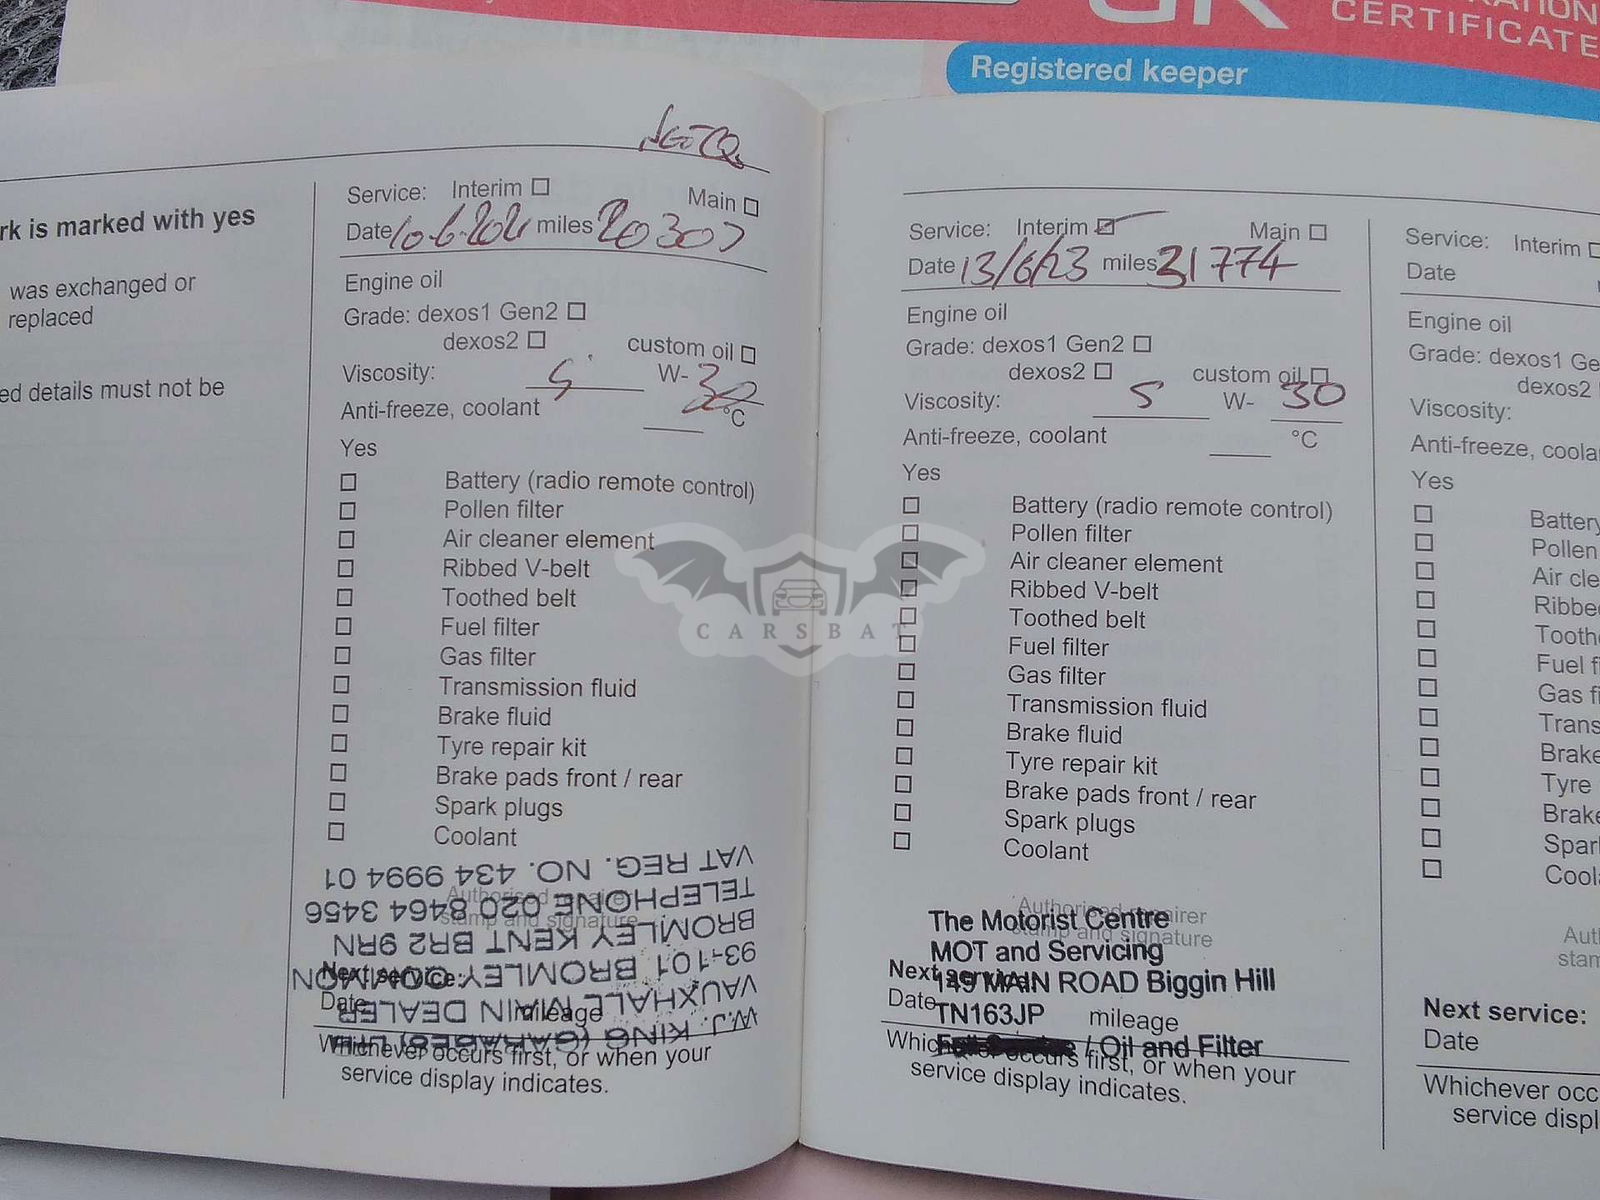 RATION
CERTIFICATE
Registered keeper
rk is marked with yes
was exchanged or
replaced
ed details must not be
Service: Interim ☐ Main ☐
Date 10.6.2021 miles 20307
Engine oil
Grade: dexos1 Gen2 ☐
dexos2 ☐ custom oil ☐
Viscosity: 5 W- 30
Anti-freeze, coolant °C
Yes
☐ Battery (radio remote control)
☐ Pollen filter
☐ Air cleaner element
☐ Ribbed V-belt
☐ Toothed belt
☐ Fuel filter
☐ Gas filter
☐ Transmission fluid
☐ Brake fluid
☐ Tyre repair kit
☐ Brake pads front / rear
☐ Spark plugs
☐ Coolant
Authorised repairer
stamp and signature
W.J. KING (GARAGES) LTD
VAUXHALL MAIN DEALER
93-101 BROMLEY COMMON
BROMLEY KENT BR2 9RN
TELEPHONE 020 8464 3456
VAT REG. NO. 434 9994 01
Next service:
Date mileage
Whichever occurs first, or when your
service display indicates.
Service: Interim ☑ Main ☐
Date 13/6/23 miles 31774
Engine oil
Grade: dexos1 Gen2 ☐
dexos2 ☐ custom oil ☐
Viscosity: 5 W- 30
Anti-freeze, coolant °C
Yes
☐ Battery (radio remote control)
☐ Pollen filter
☐ Air cleaner element
☐ Ribbed V-belt
☐ Toothed belt
☐ Fuel filter
☐ Gas filter
☐ Transmission fluid
☐ Brake fluid
☐ Tyre repair kit
☐ Brake pads front / rear
☐ Spark plugs
☐ Coolant
Authorised repairer
stamp and signature
The Motorist Centre
MOT and Servicing
149 MAIN ROAD Biggin Hill
TN163JP
/ Oil and Filter
Next service:
Date mileage
Whichever occurs first, or when your
service display indicates.
Service: Interim ☐
Date
Engine oil
Grade: dexos1 Ge
dexos2
Viscosity:
Anti-freeze, coola
Yes
☐ Battery
☐ Pollen
☐ Air cle
☐ Ribbe
☐ Tooth
☐ Fuel f
☐ Gas f
☐ Trans
☐ Brake
☐ Tyre
☐ Brake
☐ Spar
☐ Cool
Aut
stam
Next service:
Date
Whichever occ
service displ
CARSBAT